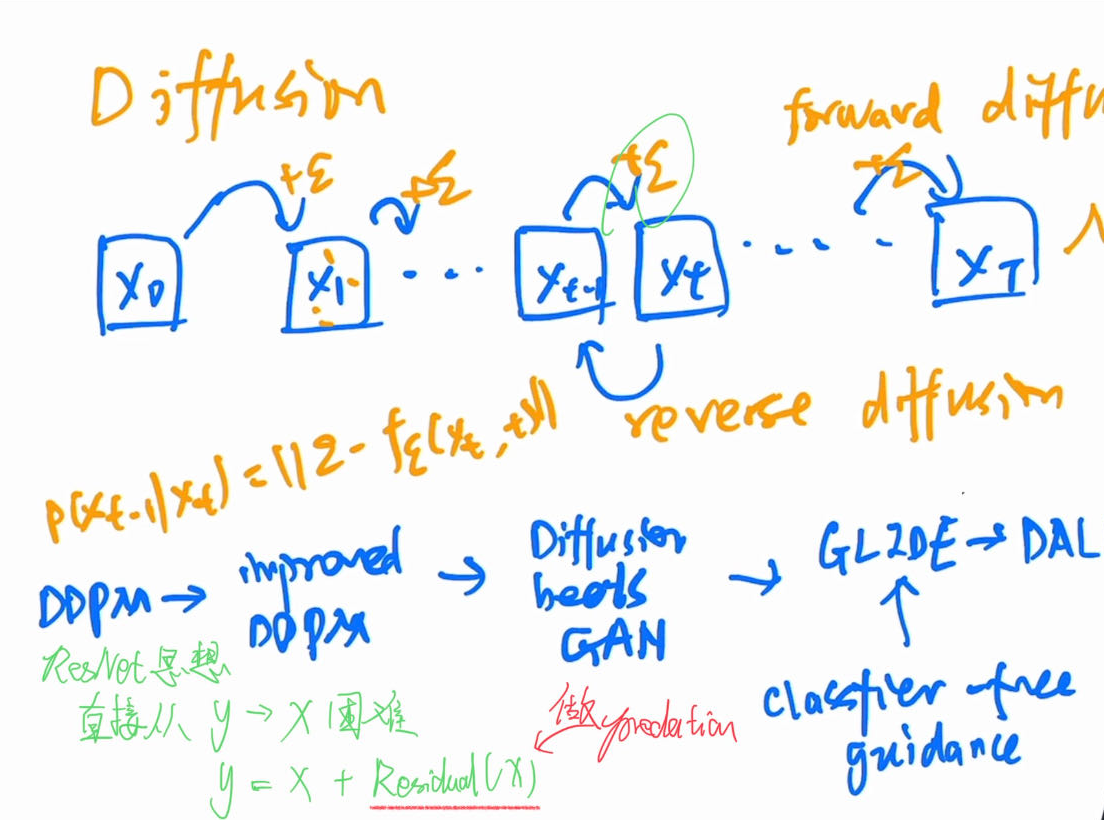 Diffusion
forward diffu
+ε +ε +ε +ε
X0 X1 ... Xt-1 Xt .... XT
p(Xt-1|Xt) = ||ε - fε(Xt, t)|| reverse diffusion
DDPM → improved DDPM → Diffusion beats GAN → GLIDE → DAL
↑
classfier-free
guidance
ResNet思想
直接从 y → X 困难
y = X + Residual(X)
做 predation